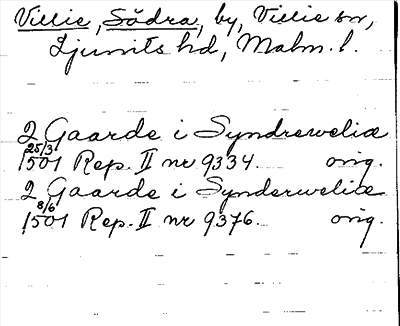 Villie, Södra, by, Villie sn,
Ljunits hd, Malm. l.
2 Gaarde i Syndreweliæ
25/3 1501 Rep. II nr 9334. orig.
2 Gaarde i Synderweliæ
8/6 1501 Rep. II nr 9376. orig.